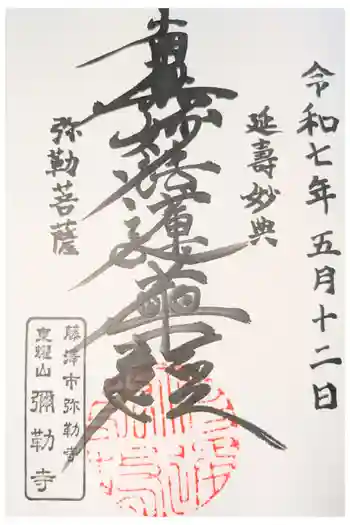 令和七年五月十二日
延壽妙典
南無妙法蓮華経
弥勒菩薩
藤澤市弥勒寺
東耀山
彌勒寺